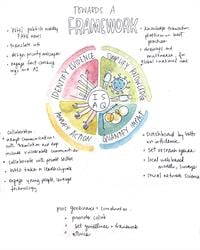 TOWARDS A
FRAMEWORK
WHO publish weekly
FAKE news
translate info
design priority messages
engage fact checking
orgs and AI
knowledge translation
platform on best
practices
develops old
multimedia, for
global + national use
IDENTIFY EVIDENCE
SIMPLIFY KNOWLEDGE
AMPLIFY ACTION
QUANTIFY IMPACT
collaboration
adapt communications
with translation and dep
include vulnerable communities
collaborate with private sector
WHO taken a leadership role
engage young people, leverage
technology
Dashboard by WHO
on infodemic
set research agenda
local web based
models, surveys
social network science
plus governance + coordination
promote collab
set guidelines + framework
ethics